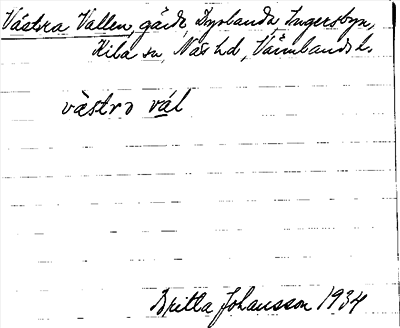 Västra Vallen, gård, Ingersbyn,
Kila sn, Näs hd, Värmlands l.
västrə väl
Britta Johansson 1934